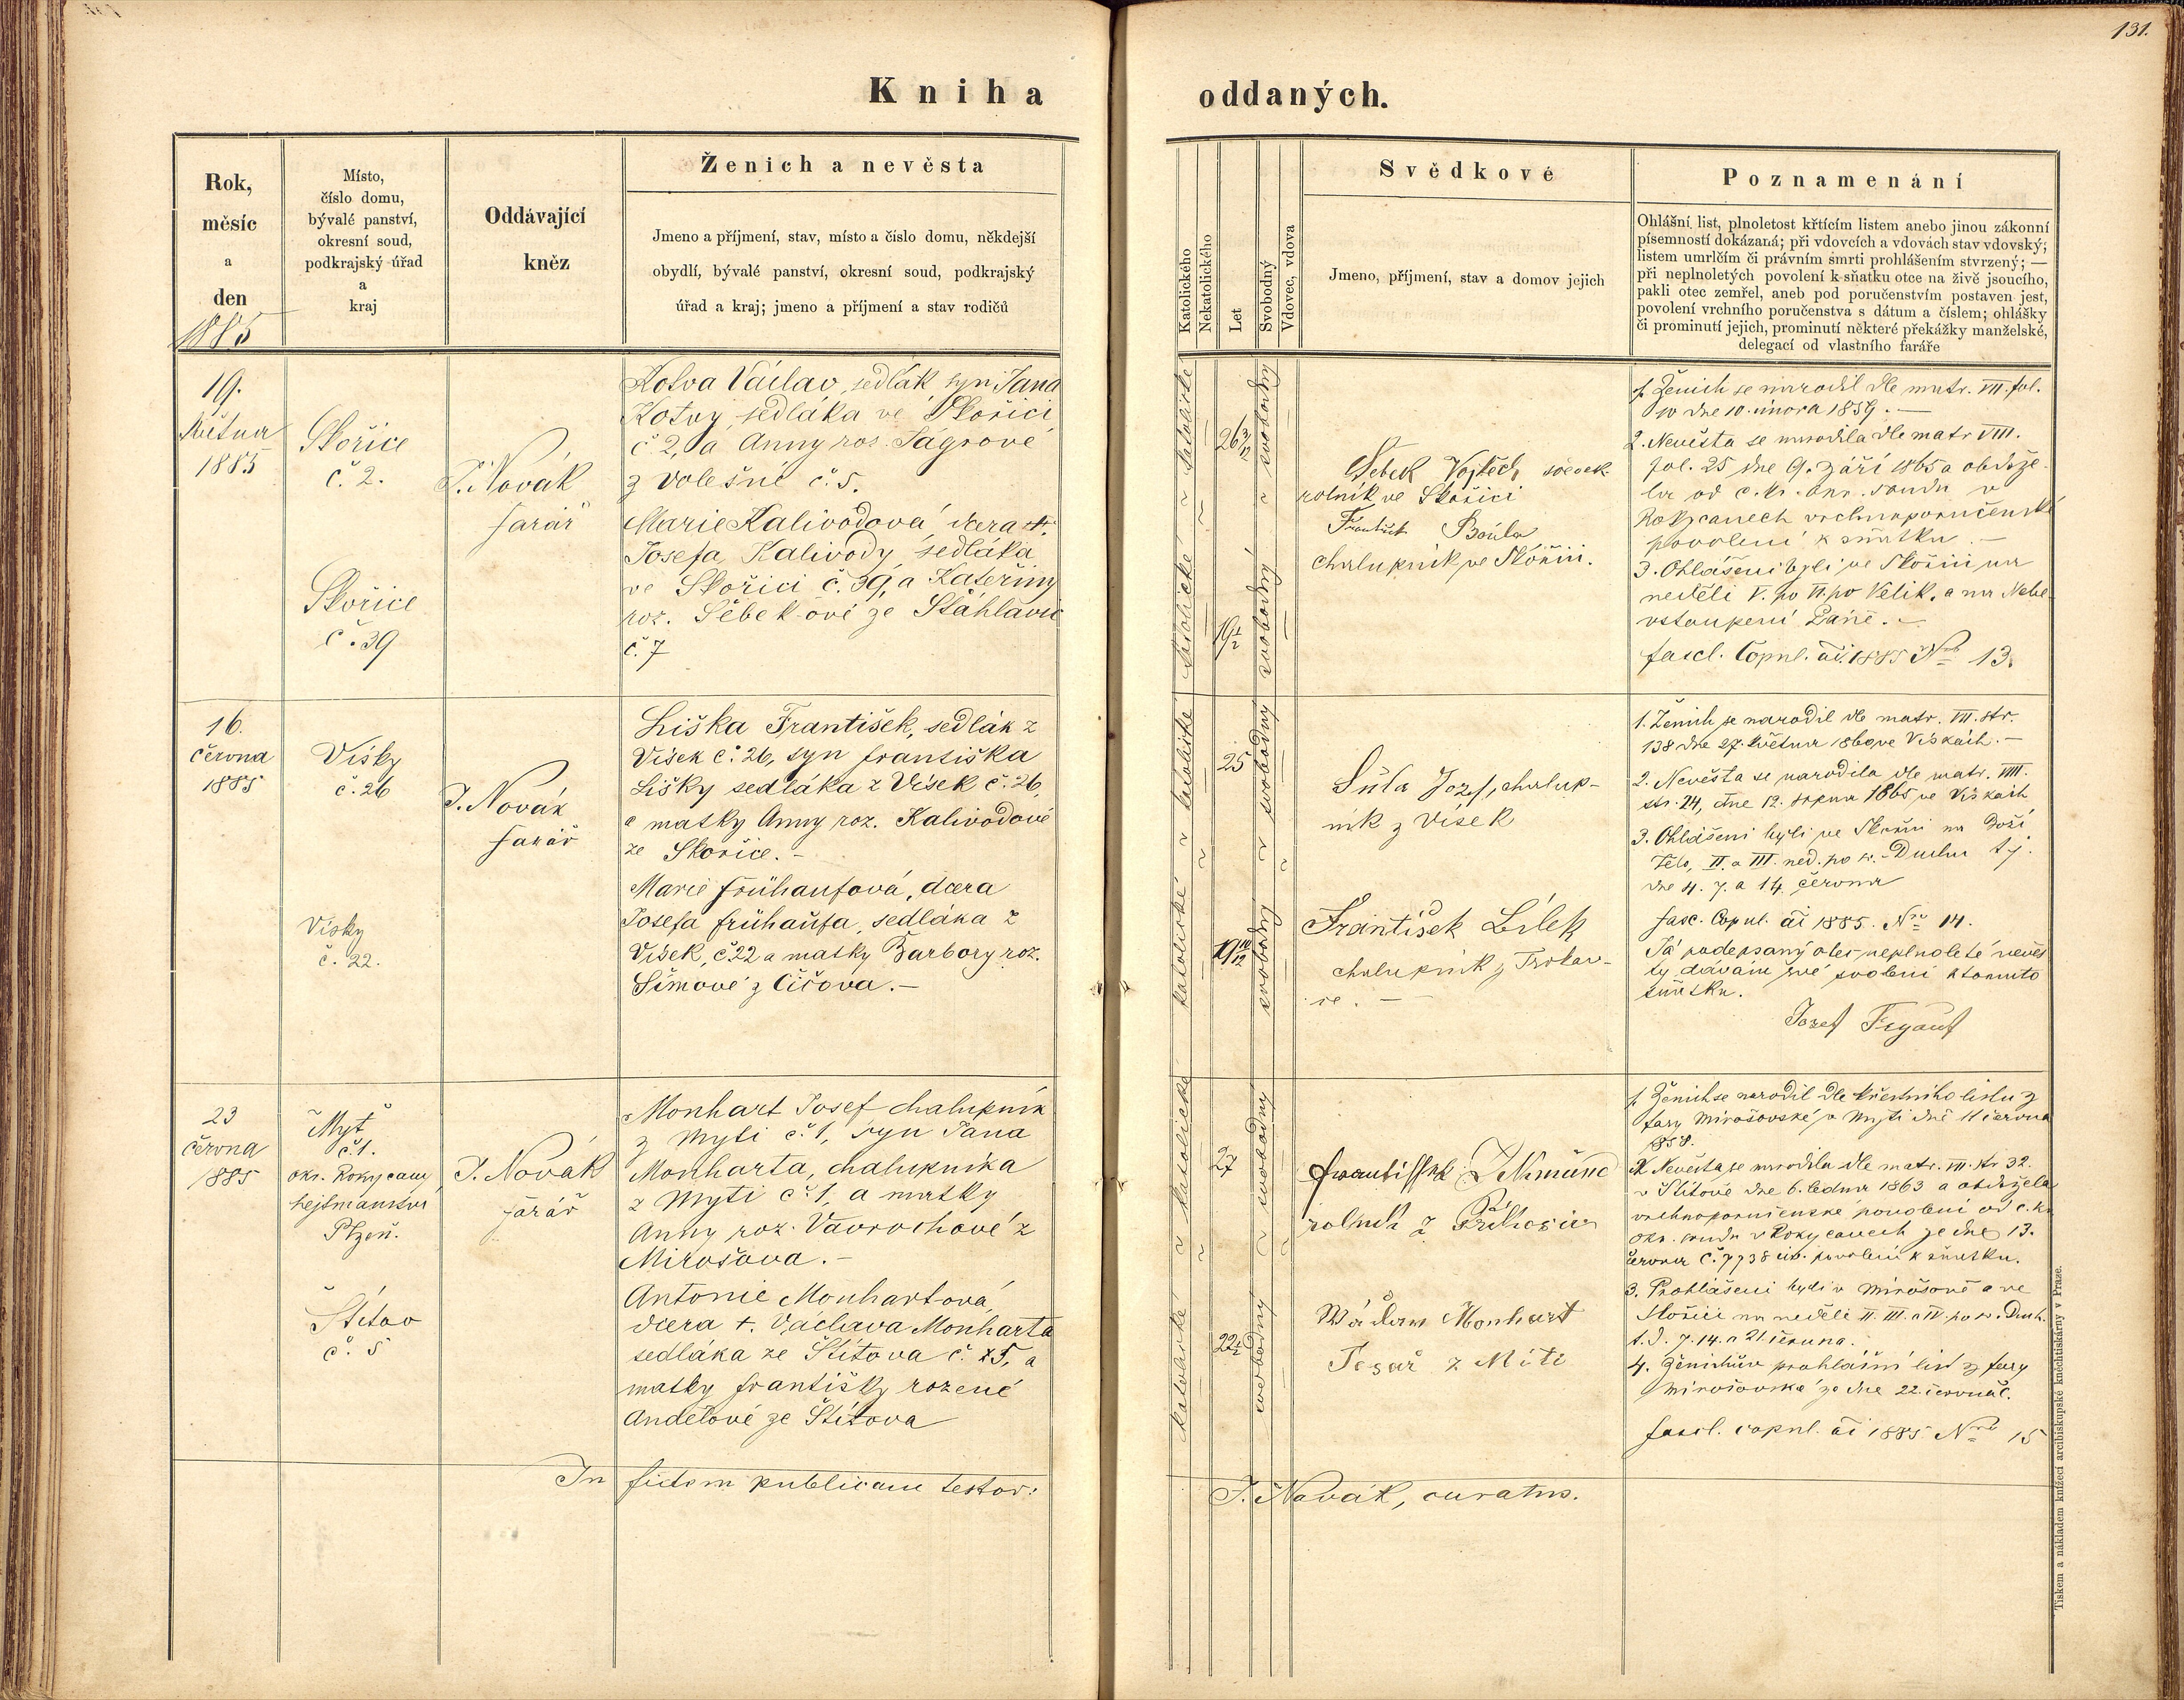 131.
Kniha oddaných.
Rok,
měsíc
a
den
1885
Místo,
číslo domu,
bývalé panství,
okresní soud,
podkrajský úřad
a
kraj
Oddávající
kněz
Ženich a nevěsta
Jmeno a příjmení, stav, místo a číslo domu, někdejší
obydlí, bývalé panství, okresní soud, podkrajský
úřad a kraj; jmeno a příjmení a stav rodičů
Katolického
Nekatolického
Let
Svobodný
Vdovec, vdova
Svědkové
Jmeno, příjmení, stav a domov jejich
Poznamenání
Ohlášní list, plnoletost křticím listem anebo jinou zákonní
písemností dokázaná; při vdovcích a vdovách stav vdovský;
listem umrlčím či právním smrti prohlášením stvrzený; —
při neplnoletých povolení k sňatku otce na živě jsoucího,
pakli otec zemřel, aneb pod poručenstvím postaven jest,
povolení vrchního poručenstva s dátum a číslem; ohlášky
či prominutí jejich, prominutí některé překážky manželské,
delegací od vlastního faráře
19.
Května
1885
Skořice
č. 2.
Skořice
č. 39
J. Novák
farář
Kotva Václav, sedlák, syn Jana
Kotvy, sedláka ve Skořici
č 2, a Anny roz. Ságrové
z Volešné č. 5.
Marie Kalivodová, dcera +
Josefa Kalivody, sedláka
ve Skořici č. 39, a Kateřiny
roz. Šebek-ové ze Šťáhlavic
č. 7
katolické
katolické
26 3/12
19 1/2
svobodný
svobodný
Šebek Vojtěch
rolník ve Skořici
František
chalupník ve Skořici.
1. Ženich se narodil dle matr. VII. fol.
10 dne 10. února 1859. —
2. Nevěsta se narodila dle matr VIII.
fol. 25 dne 9. září 1865 a obdrže-
la od c. kr. okr. soudu v
Rokycanech vrchnoporučenské
povolení k sňatku. —
3. Ohlášeni byli ve Skořici na
neděli V. po VI. po Velik. a na Nebe-
vstoupení Páně. —
fascl. Copul. ai. 1885 Nro 13.
16.
června
1885
Vísky
č. 26
Vísky
č. 22.
J. Novák
farář
Liška František, sedlák z
Vísek č. 26, syn Františka
Lišky sedláka z Vísek č. 26,
a matky Anny roz. Kalivodové
ze Skořice. —
Marie Frühaufová, dcera
Josefa Frühaufa, sedláka z
Vísek, č. 22 a matky Barbory roz.
Šímové z Čičova. —
katolické
katolické
25
19 10/12
svobodný
svobodný
Šůla Jozef, chalup-
ník z Vísek
František Bílek
chalupník z Trokav-
ce. —
1. Ženich se narodil dle matr. VII. str.
138 dne 27. května 1860 ve Vískách. —
2. Nevěsta se narodila dle matr. VIII.
str. 24, dne 12. srpna 1865 ve Vískách
3. Ohlášeni byli ve Skořici na Boží
Tělo, II. a III. ned. po sv. Duchu t. j.
dne 4. 7. a 14. června
fasc. Copul. ai 1885. Nro 14.
Já podepsaný otec neplnoleté nevěs
ty dávám své svolení k tomuto
sňatku.
Jozef Frygauf
23
června
1885
Mýť
č. 1.
okr. Rokycany
hejtmanství
Plzeň.
Štítov
č. 5
J. Novák
farář
Monhart Josef chalupník
z Mýti č. 1, syn Jana
Monharta, chalupníka
z Mýti č. 1, a matky
Anny roz. Vavrochové z
Mirošova. —
Antonie Monhart-ová,
dcera +. Václava Monharta
sedláka ze Štítova č. 5, a
matky Františky rozené
Andělové ze Štítova
katolické
katolické
27
22 1/2
svobodný
svobodný
František Zikmund
rolník z Příkosic
Wáclaw Monhart
Tesař z Míti
1. Ženich se narodil dle křestního listu z
fary Mirošovské v Mýti dne 11 června
1858.
2. Nevěsta se narodila dle matr. VII. str 32.
v Štítově dne 6. ledna 1863 a obdržela
vrchnoporučenské povolení od c. kr.
okr. soudu v Rokycanech ze dne 13.
června č. 7738 civ. povolení k sňatku.
3. Prohlášeni byli v Mirošově a ve
Skořici na neděli II. III. a IV. po sv. Duch.
t. j. 7. 14. a 21. června.
4. Ženichův prohlášní list z fary
Mirošovské ze dne 22. června č.
fascl. copul. ai 1885 Nro 15
In fidem publicam testor:
J. Novák, curatus.
Tiskem a nákladem knížecí arcibiskupské knihtiskárny v Praze.